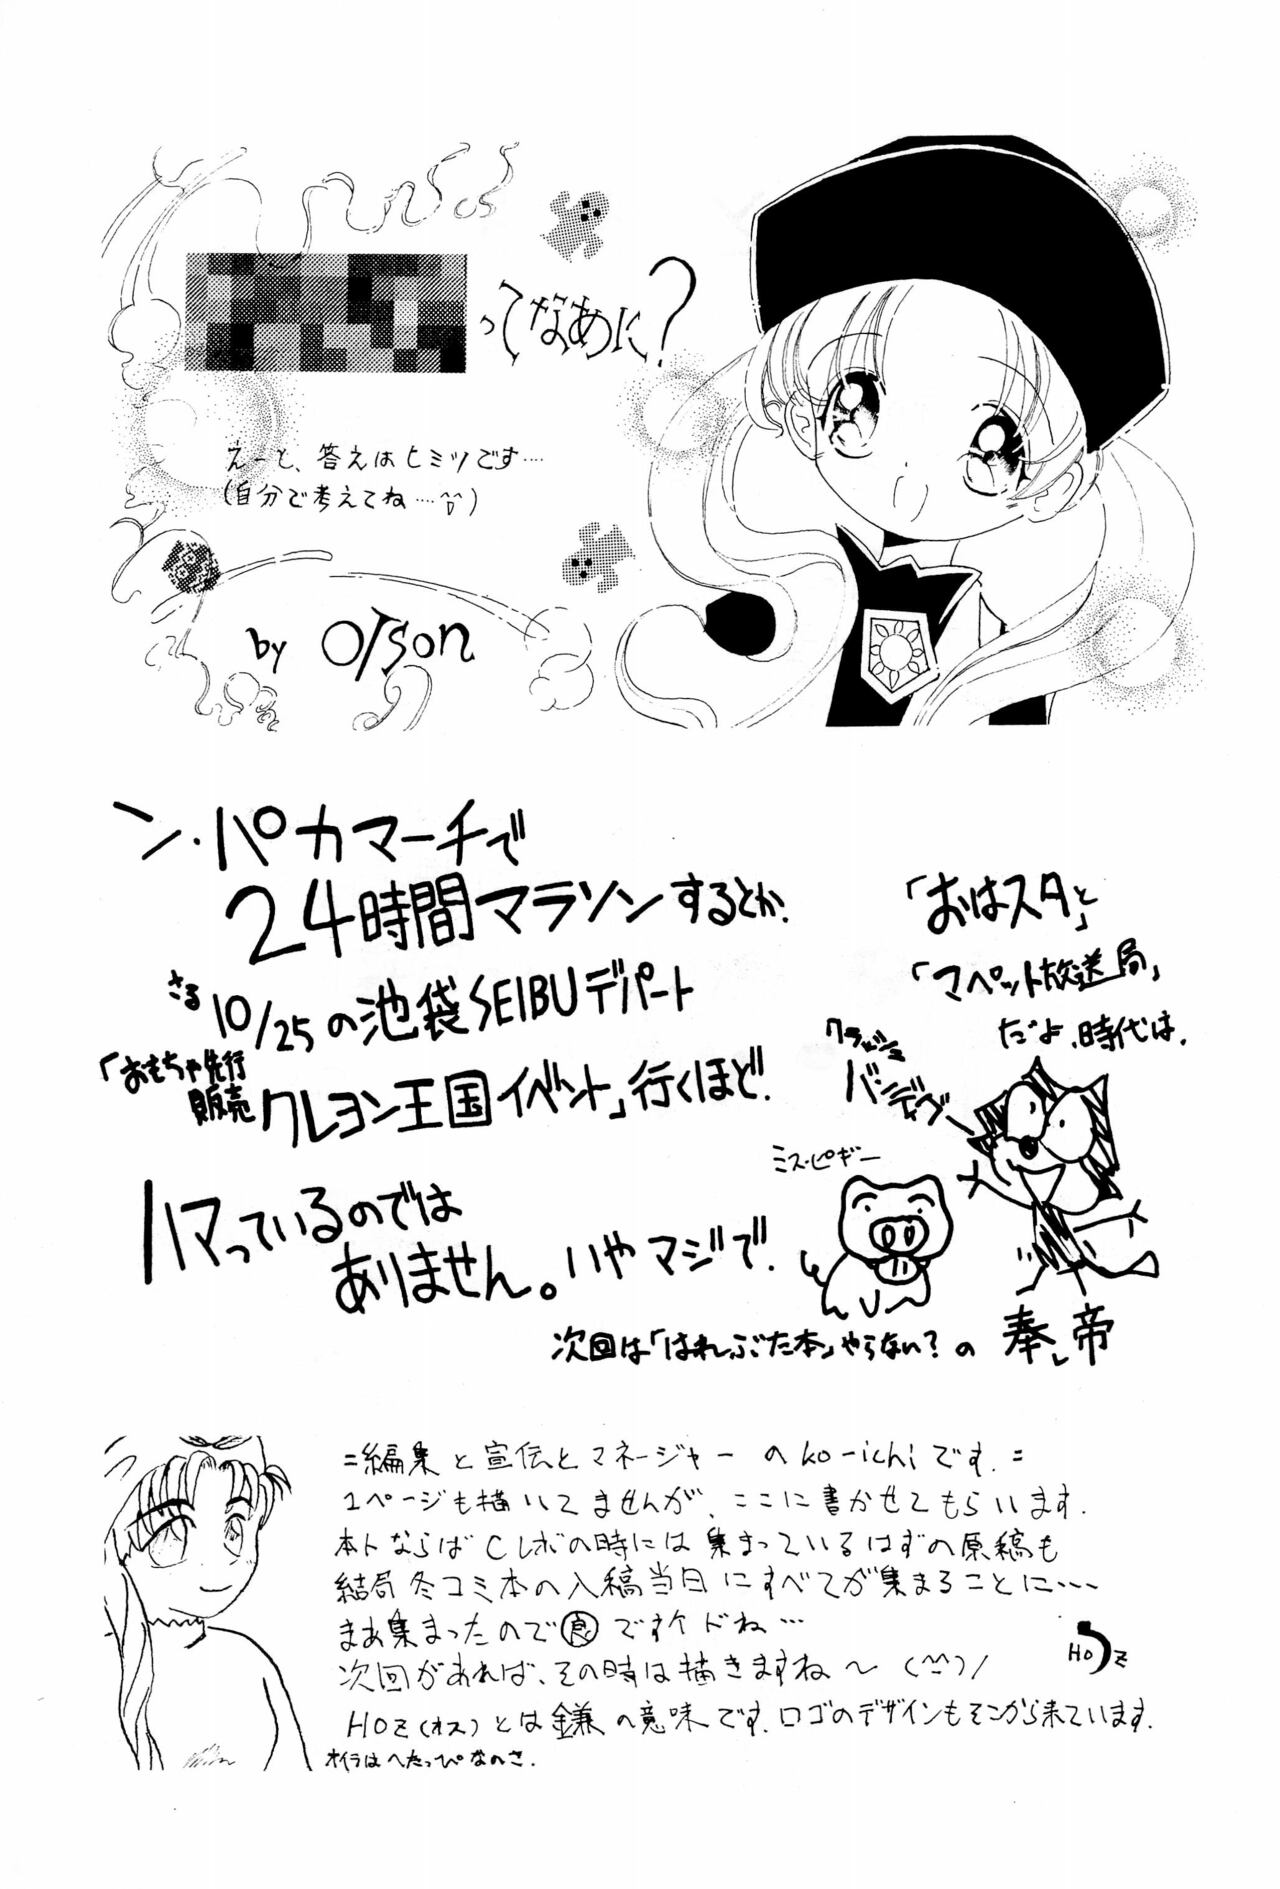 ってなあに?
えーと、答えはヒミツです‥‥
(自分で考えてね‥‥^^;)
by orson
ン・パカマーチで
24時間マラソンするとか、
さる10/25の池袋SEIBUデパート
「おもちゃ先行販売
クレヨン王国イベント」行くほど、
ハマっているのでは
ありません。いやマジで、
「おはスタ」と
「マペット放送局」
だよ、時代は、
クラッシュ
バンディグー
ミス・ピギー
次回は「はれぶた本」やらない?の 奉し帝
=編集と宣伝とマネージャーのko-ichiです.=
1ページも描いてませんが、ここに書かせてもらいます.
本トならばCレボの時には集まっているはずの原稿も
結局冬コミ本の入稿当日にすべてが集まることに‥‥
まあ集まったので㊐ですケドね‥‥
次回があれば、その時は描きますね〜 (^^)/
HOZ(オス)とは鎌の意味です.ロゴのデザインもそこから来ています.
オイラはへたっぴなのさ.
HOZ